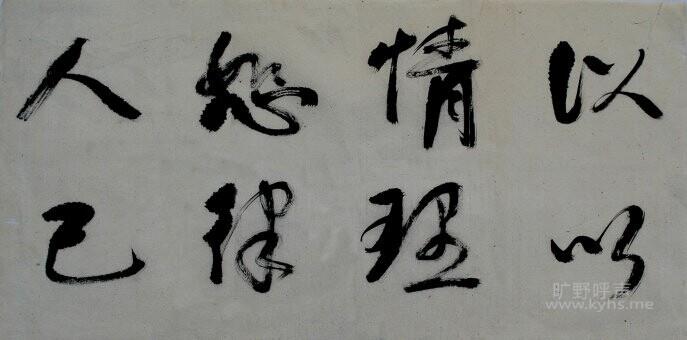 以情恕人
以理律己
旷野呼声
www.kyhs.me